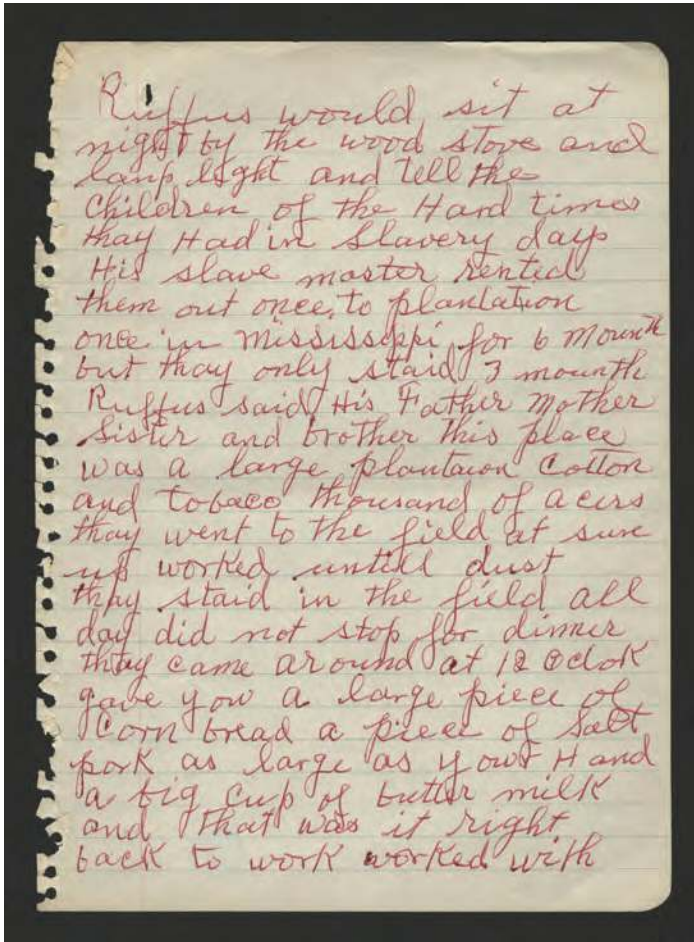 1
Ruffus would sit at
night by the wood stove and
lamp light and tell the
children of the Hard times
thay Had in Slavery days
His slave master rented
them out once, to plantation
once in Mississippi for 6 Mounth
but thay only staid 3 mounth
Ruffus said His Father Mother
Sister and brother this place
was a large plantaion Cotton
and tobaco thousand of acers
thay went to the field at sun
up worked untill dust
thay staid in the field all
day did not stop for dinner
thay came around at 12 Oclok
gave you a large piece of
Corn bread a piece of Salt
pork as large as your Hand
a big cup of butter milk
and that was it right
back to work worked with